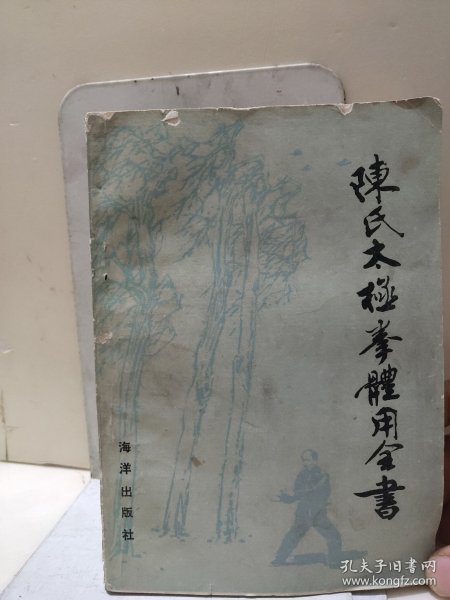 陳氏太極拳體用全書
海洋出版社
孔夫子旧书网
www.kongfz.com